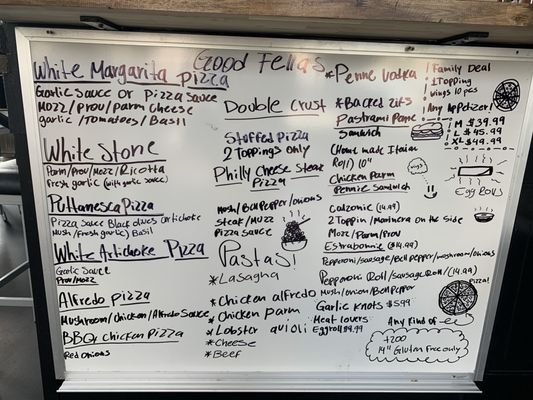 Good Fellas
White Margarita Pizza
Garlic Sauce or Pizza Sauce
Mozz/Prov/Parm Cheese
garlic/Tomatoes/Basil
White Stone
Parm/Prov/Mozz/Ricotta
Fresh garlic (with garlic sauce)
Puttanesca Pizza
Pizza Sauce Black olives Artichoke
Mush/Fresh garlic) Basil
White Artichoke Pizza
Garlic Sauce
Prov/Mozz
Alfredo Pizza
Mushroom/Chicken/Alfredo Sauce
BBQ Chicken Pizza
Red onions
Double Crust
Stuffed Pizza
2 Toppings Only
Philly Cheese Steak
Pizza
Mush/Bell Pepper/Onions
Steak/Mozz
Pizza Sauce
Pastas!
*Lasagna
*Chicken alfredo
*Chicken Parm
*Lobster
*Cheese
*Beef
*Penne Vodka
*Backed Zits
Pastrami
Sandwich
(Home made Italian
Roll) 10"
Chicken Parm
Pennie Sandwich
Calzonie (14.99)
2 Toppin/Marinera on the side
Mozz/Parm/Prov
($14.99)
Pepperoni/Sausage/Bell Pepper/Mushroom/onions
Pepperoni Roll/Sausage Roll/(14.99)
Mush/Onion/Bell Pepper
Garlic knots $5.99
Meat lovers
Eggroll $4.99
Family Deal
1 Topping
wings 10 pcs
Any Appetizer!
M $39.99
L $45.99
XL $49.99
Egg Rolls
wings
Pizza!
Any kind of
+200
14" Gluten Free only